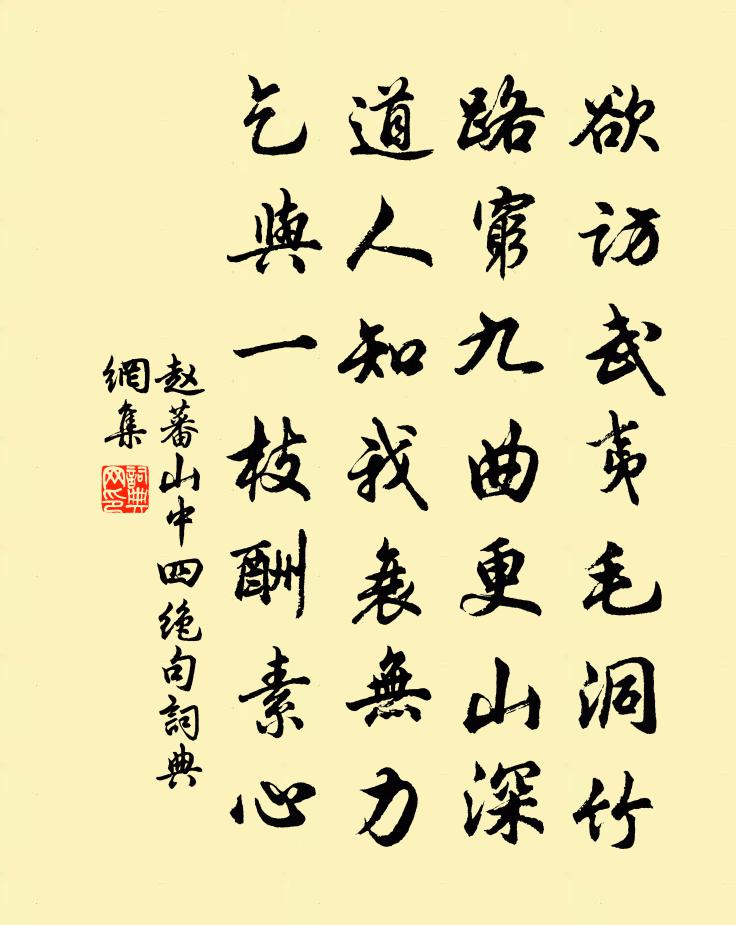 欲访武夷毛洞竹
路窮九曲更山深
道人知我衰無力
乞與一枝酬素心
赵蕃山中四绝句詞典
網集
詞典
网印